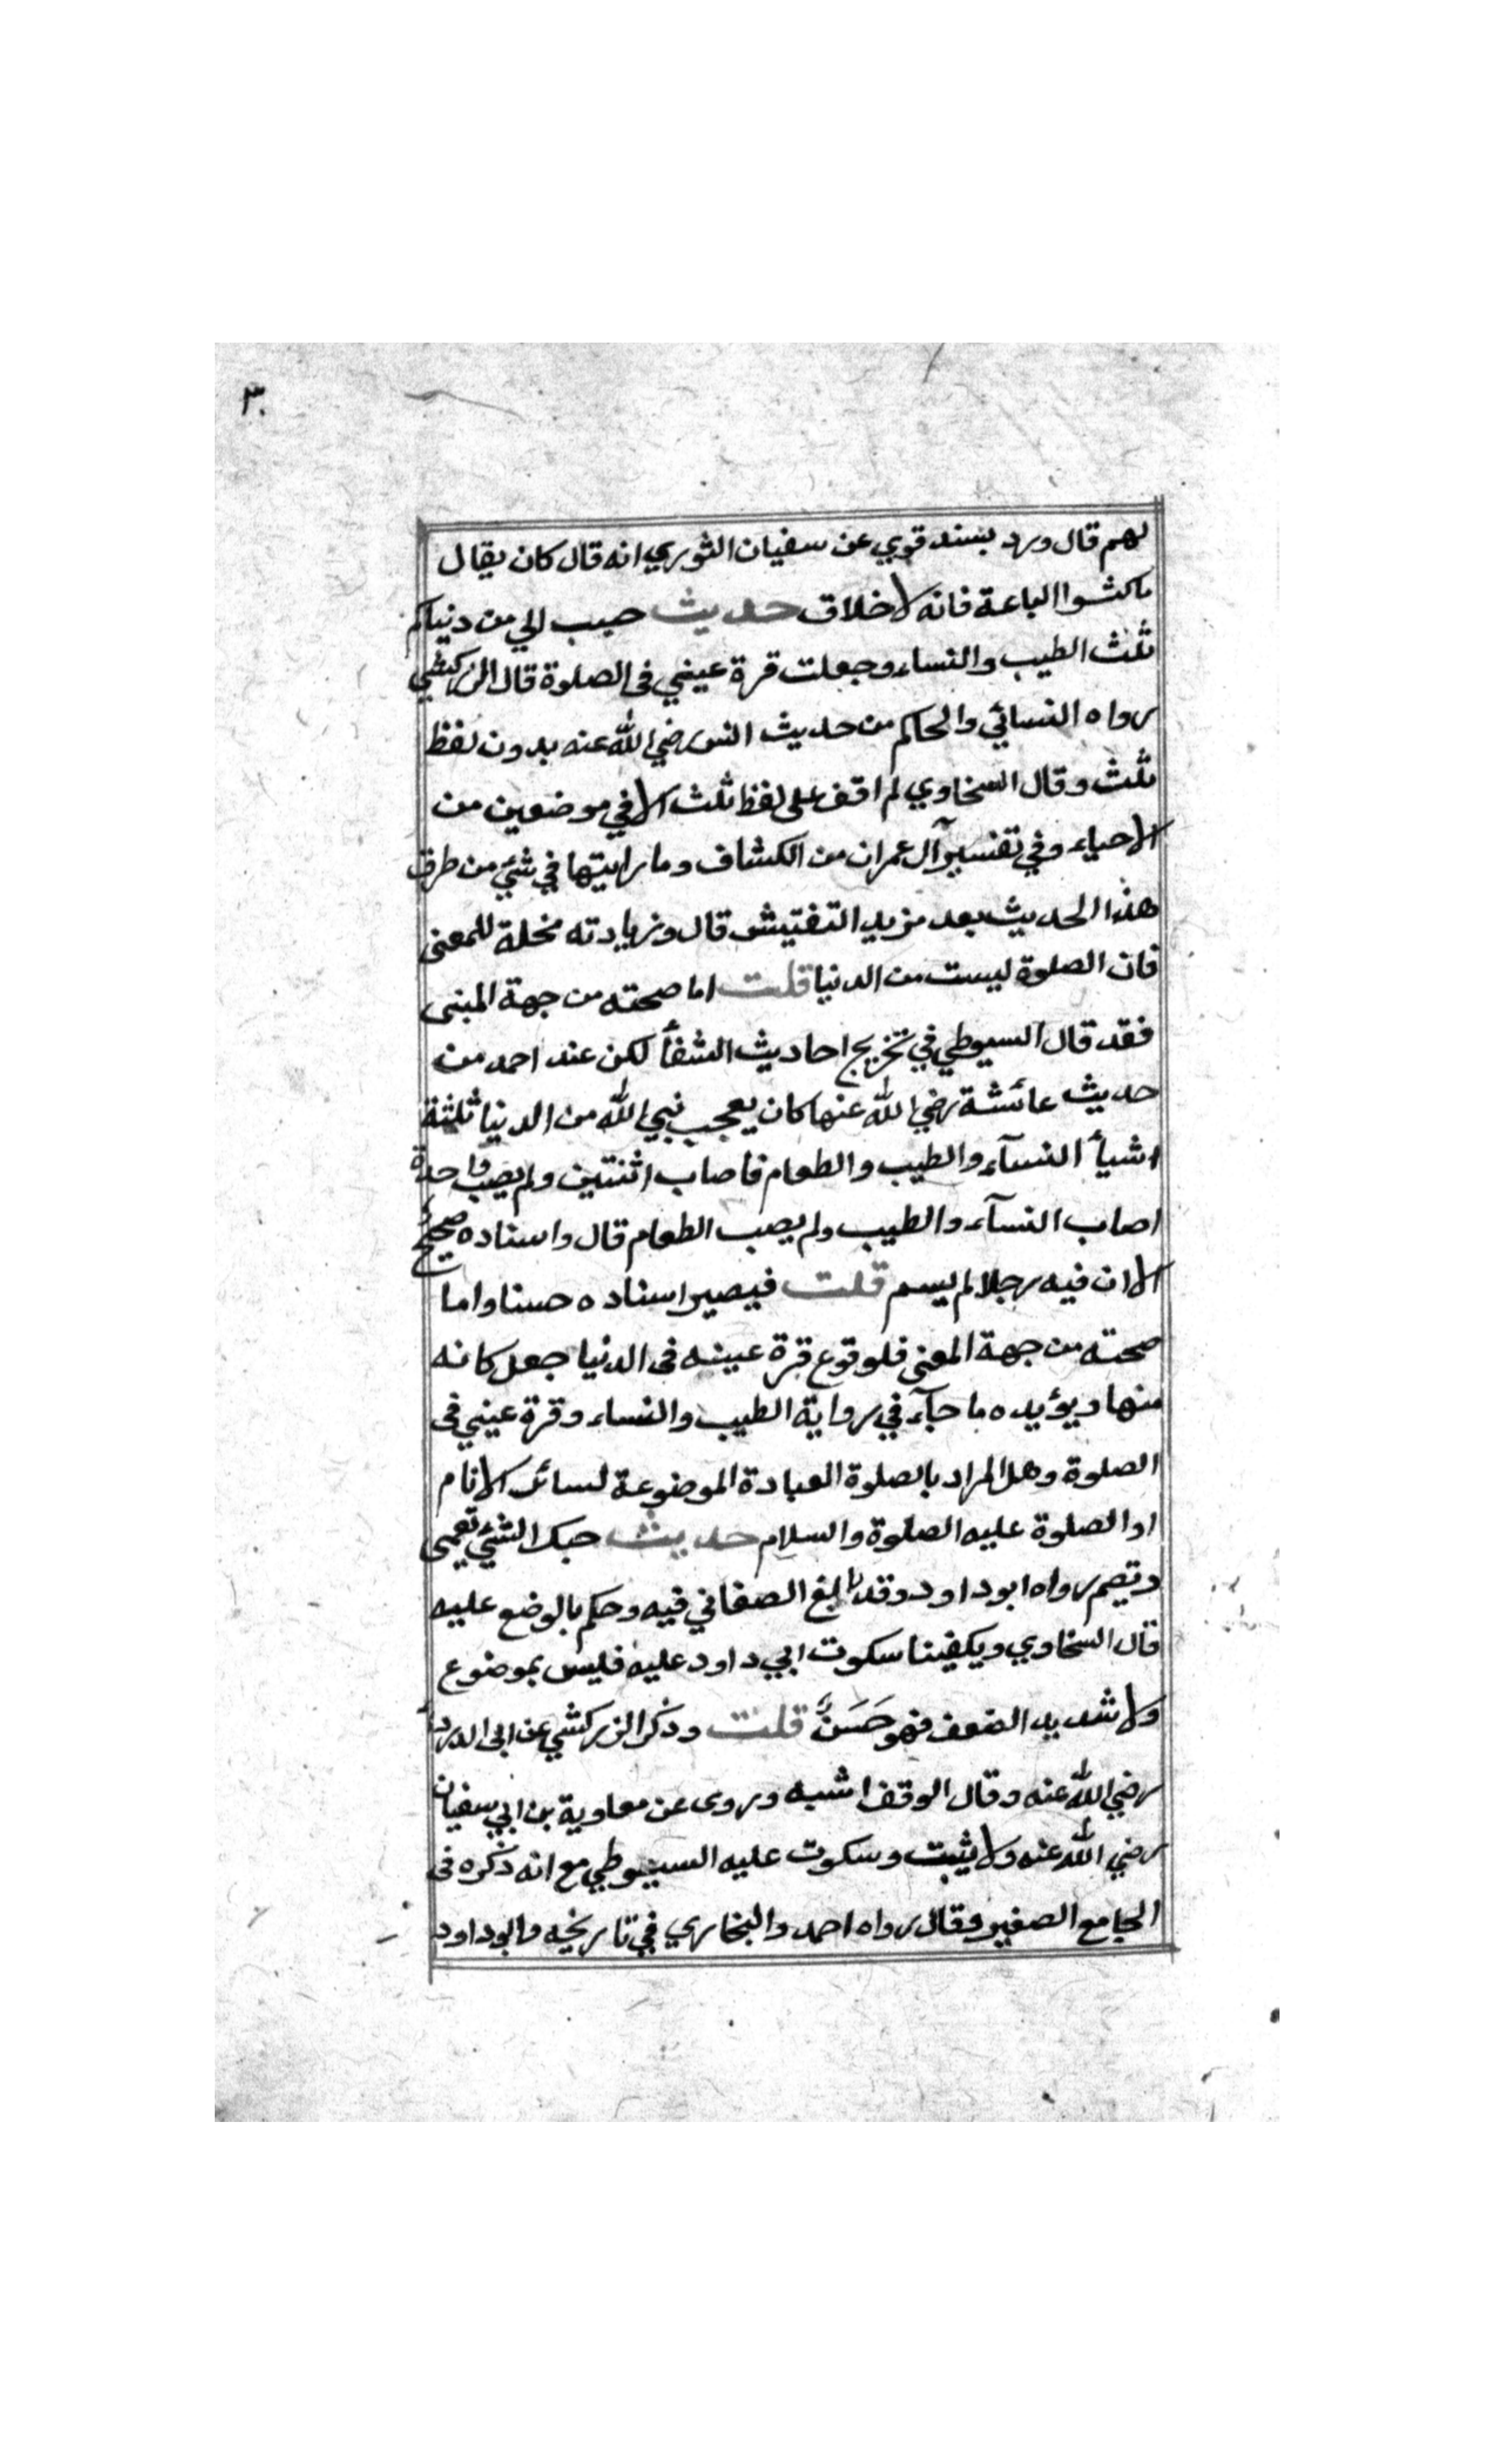 ٣٠
لهم قال ورد بسند قوي عن سفيان الثوري انه قال كان يقال
ماكسوا الباعة فانه لاخلاق حديث حبب الي من دنياكم
ثلث الطيب والنساء وجعلت قرة عيني فى الصلوة قال الزركشي
رواه النسائي والحاكم من حديث انس رضي الله عنه بدون لفظ
ثلث وقال السخاوي لم اقف على لفظ ثلث الا في موضعين من
الاحياء وفي تفسير آل عمران من الكشاف وما رايتها في شئ من طرق
هذا الحديث بعد مزيد التفتيش قال وزيادته مخلة للمعنى
فان الصلوة ليست من الدنيا قلت اما صحته من جهة المبنى
فقد قال السيوطي في تخريج احاديث الشفأ لكن عند احمد من
حديث عائشة رضي الله عنها كان يعجب نبي الله من الدنيا ثلثة
اشيأ النسآء والطيب والطعام فاصاب اثنتين ولم يصب واحدة
اصاب النسآء والطيب ولم يصب الطعام قال واسناده صحيح
الا ان فيه رجلا لم يسم قلت فيصير اسناده حسنا واما
صحته من جهة المعنى فلوقوع قرة عينه فى الدنيا جعل كانه
منها ويؤيده ما جآء في رواية الطيب والنساء وقرة عيني فى
الصلوة وهل المراد بالصلوة العبادة الموضوعة لسائر الانام
او الصلوة عليه الصلوة والسلام حديث حبك الشئ يعمى
ويصم رواه ابوداود وقد بالغ الصغاني فيه وحكم بالوضع عليه
قال السخاوي ويكفينا سكوت ابي داود عليه فليس بموضوع
ولا شديد الضعف فهو حَسَنٌ قلت وذكر الزركشي عن ابى الدردأ
رضي الله عنه وقال الوقف اشبه وروى عن معاوية بن ابي سفيان
رضي الله عنه ولا يثبت وسكوت عليه السيوطي مع انه ذكره فى
الجامع الصغير وقال رواه احمد والبخاري في تاريخه وابوداود